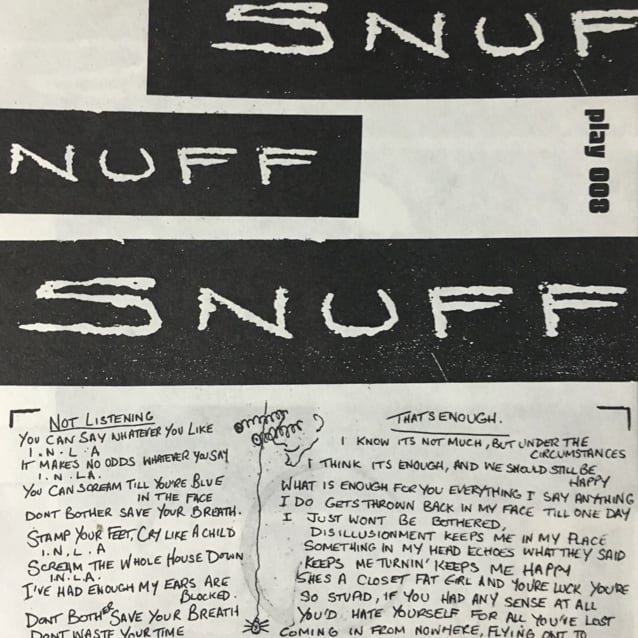 SNUF
play 008
NUFF
SNUFF
NOT LISTENING
YOU CAN SAY WHATEVER YOU LIKE
I.N.L.A
IT MAKES NO ODDS WHATEVER YOU SAY
I.N.LA.
YOU CAN SCREAM TILL YOU'RE BLUE
IN THE FACE
DONT BOTHER SAVE YOUR BREATH.
STAMP YOUR FEET, CRY LIKE A CHILD
I.N.L.A
SCREAM THE WHOLE HOUSE DOWN
I.N.L.A.
I'VE HAD ENOUGH MY EARS ARE
BLOCKED.
DONT BOTHER SAVE YOUR BREATH
DONT WASTE YOUR TIME
THATS ENOUGH.
I KNOW ITS NOT MUCH, BUT UNDER THE
CIRCUMSTANCES
I THINK ITS ENOUGH, AND WE SHOULD STILL BE
HAPPY
WHAT IS ENOUGH FOR YOU EVERYTHING I SAY ANYTHING
I DO GETS THROWN BACK IN MY FACE TILL ONE DAY
I JUST WONT BE BOTHERED,
DISILLUSIONMENT KEEPS ME IN MY PLACE
SOMETHING IN MY HEAD ECHOES WHAT THEY SAID
KEEPS ME TURNIN' KEEPS ME HAPPY
SHES A CLOSET FAT GIRL AND YOU'RE LUCK YOU'RE
SO STUPID, IF YOU HAD ANY SENSE AT ALL
YOU'D HATE YOURSELF FOR ALL YOU'VE LOST
COMING IN FROM NOWHERE, FLYING ONT TO